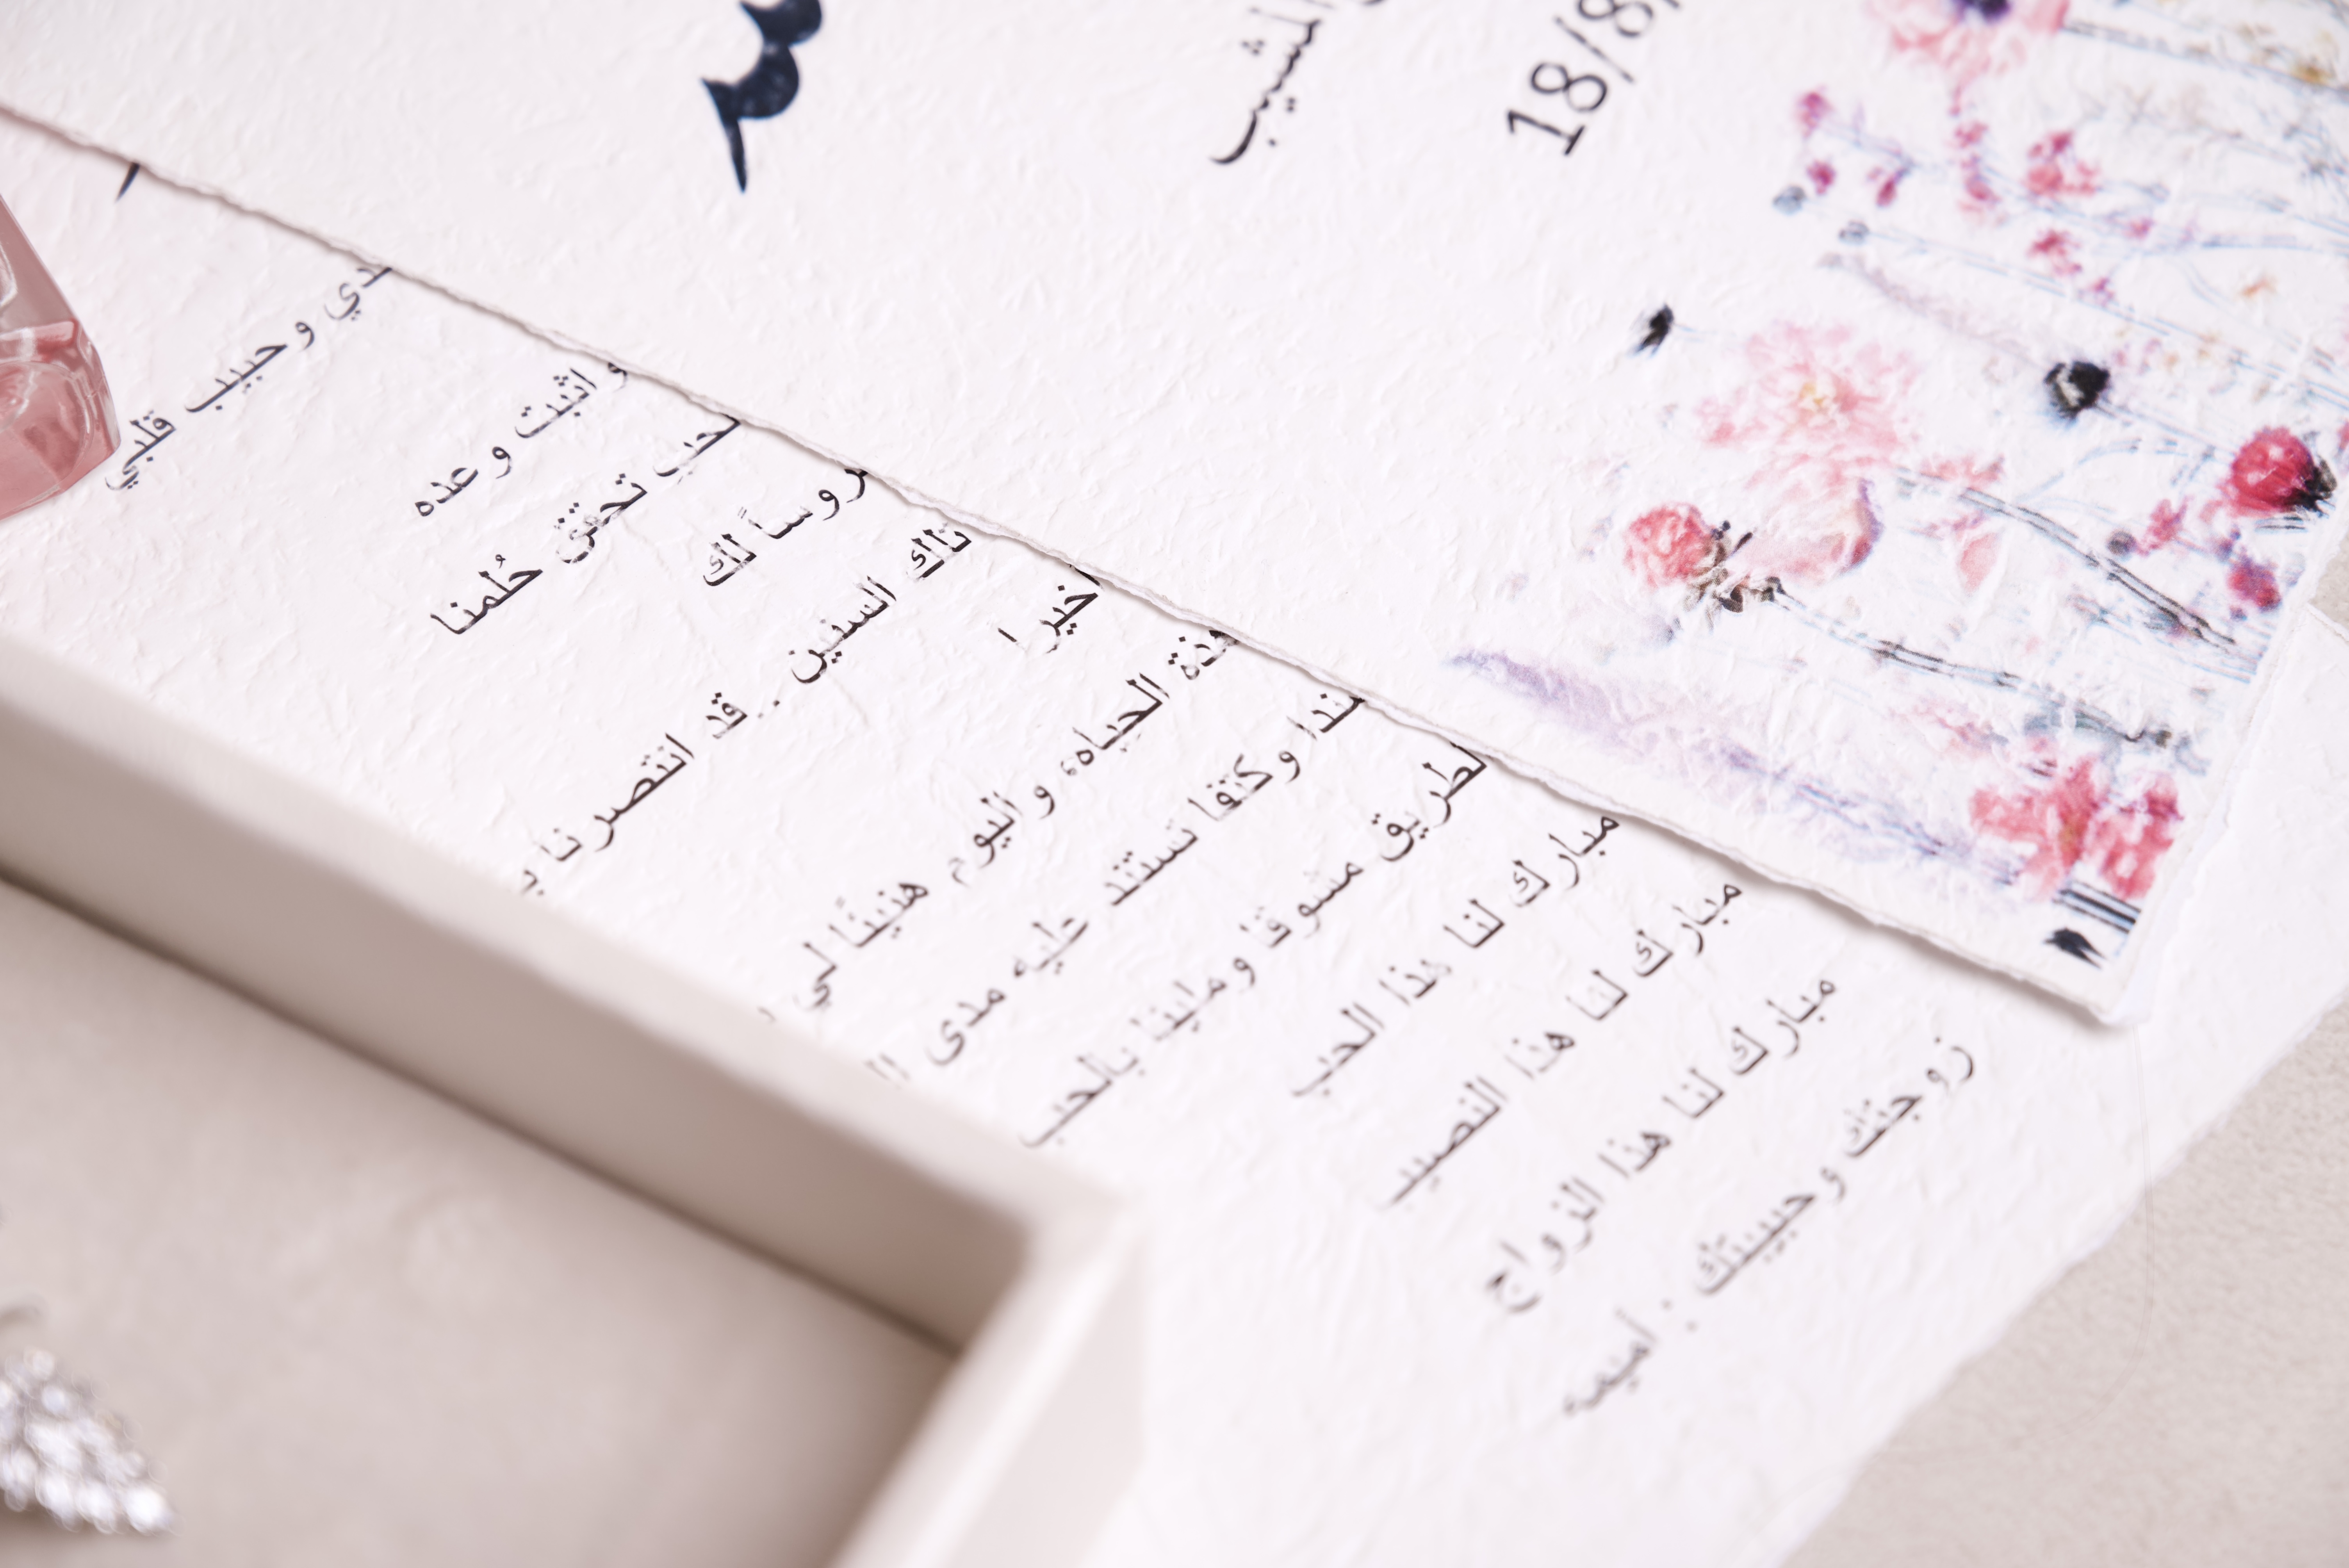 المشيب
18/8/
دي و حبيب قلبي
و اثبت وعده
تحقق حُلمنا
روساً لك
تلك السنين .. قد انتصرنا
خيرا
هذة الحياه، واليوم هنيئًا لي
سندا وكتفا تستند عليه مدى
لطريق مشوقا و مليئا بالحب
مبارك لنا هذا الحب
مبارك لنا هذا النصيب
مبارك لنا هذا الزواج
زوجتك و حبيبتك : أميمه